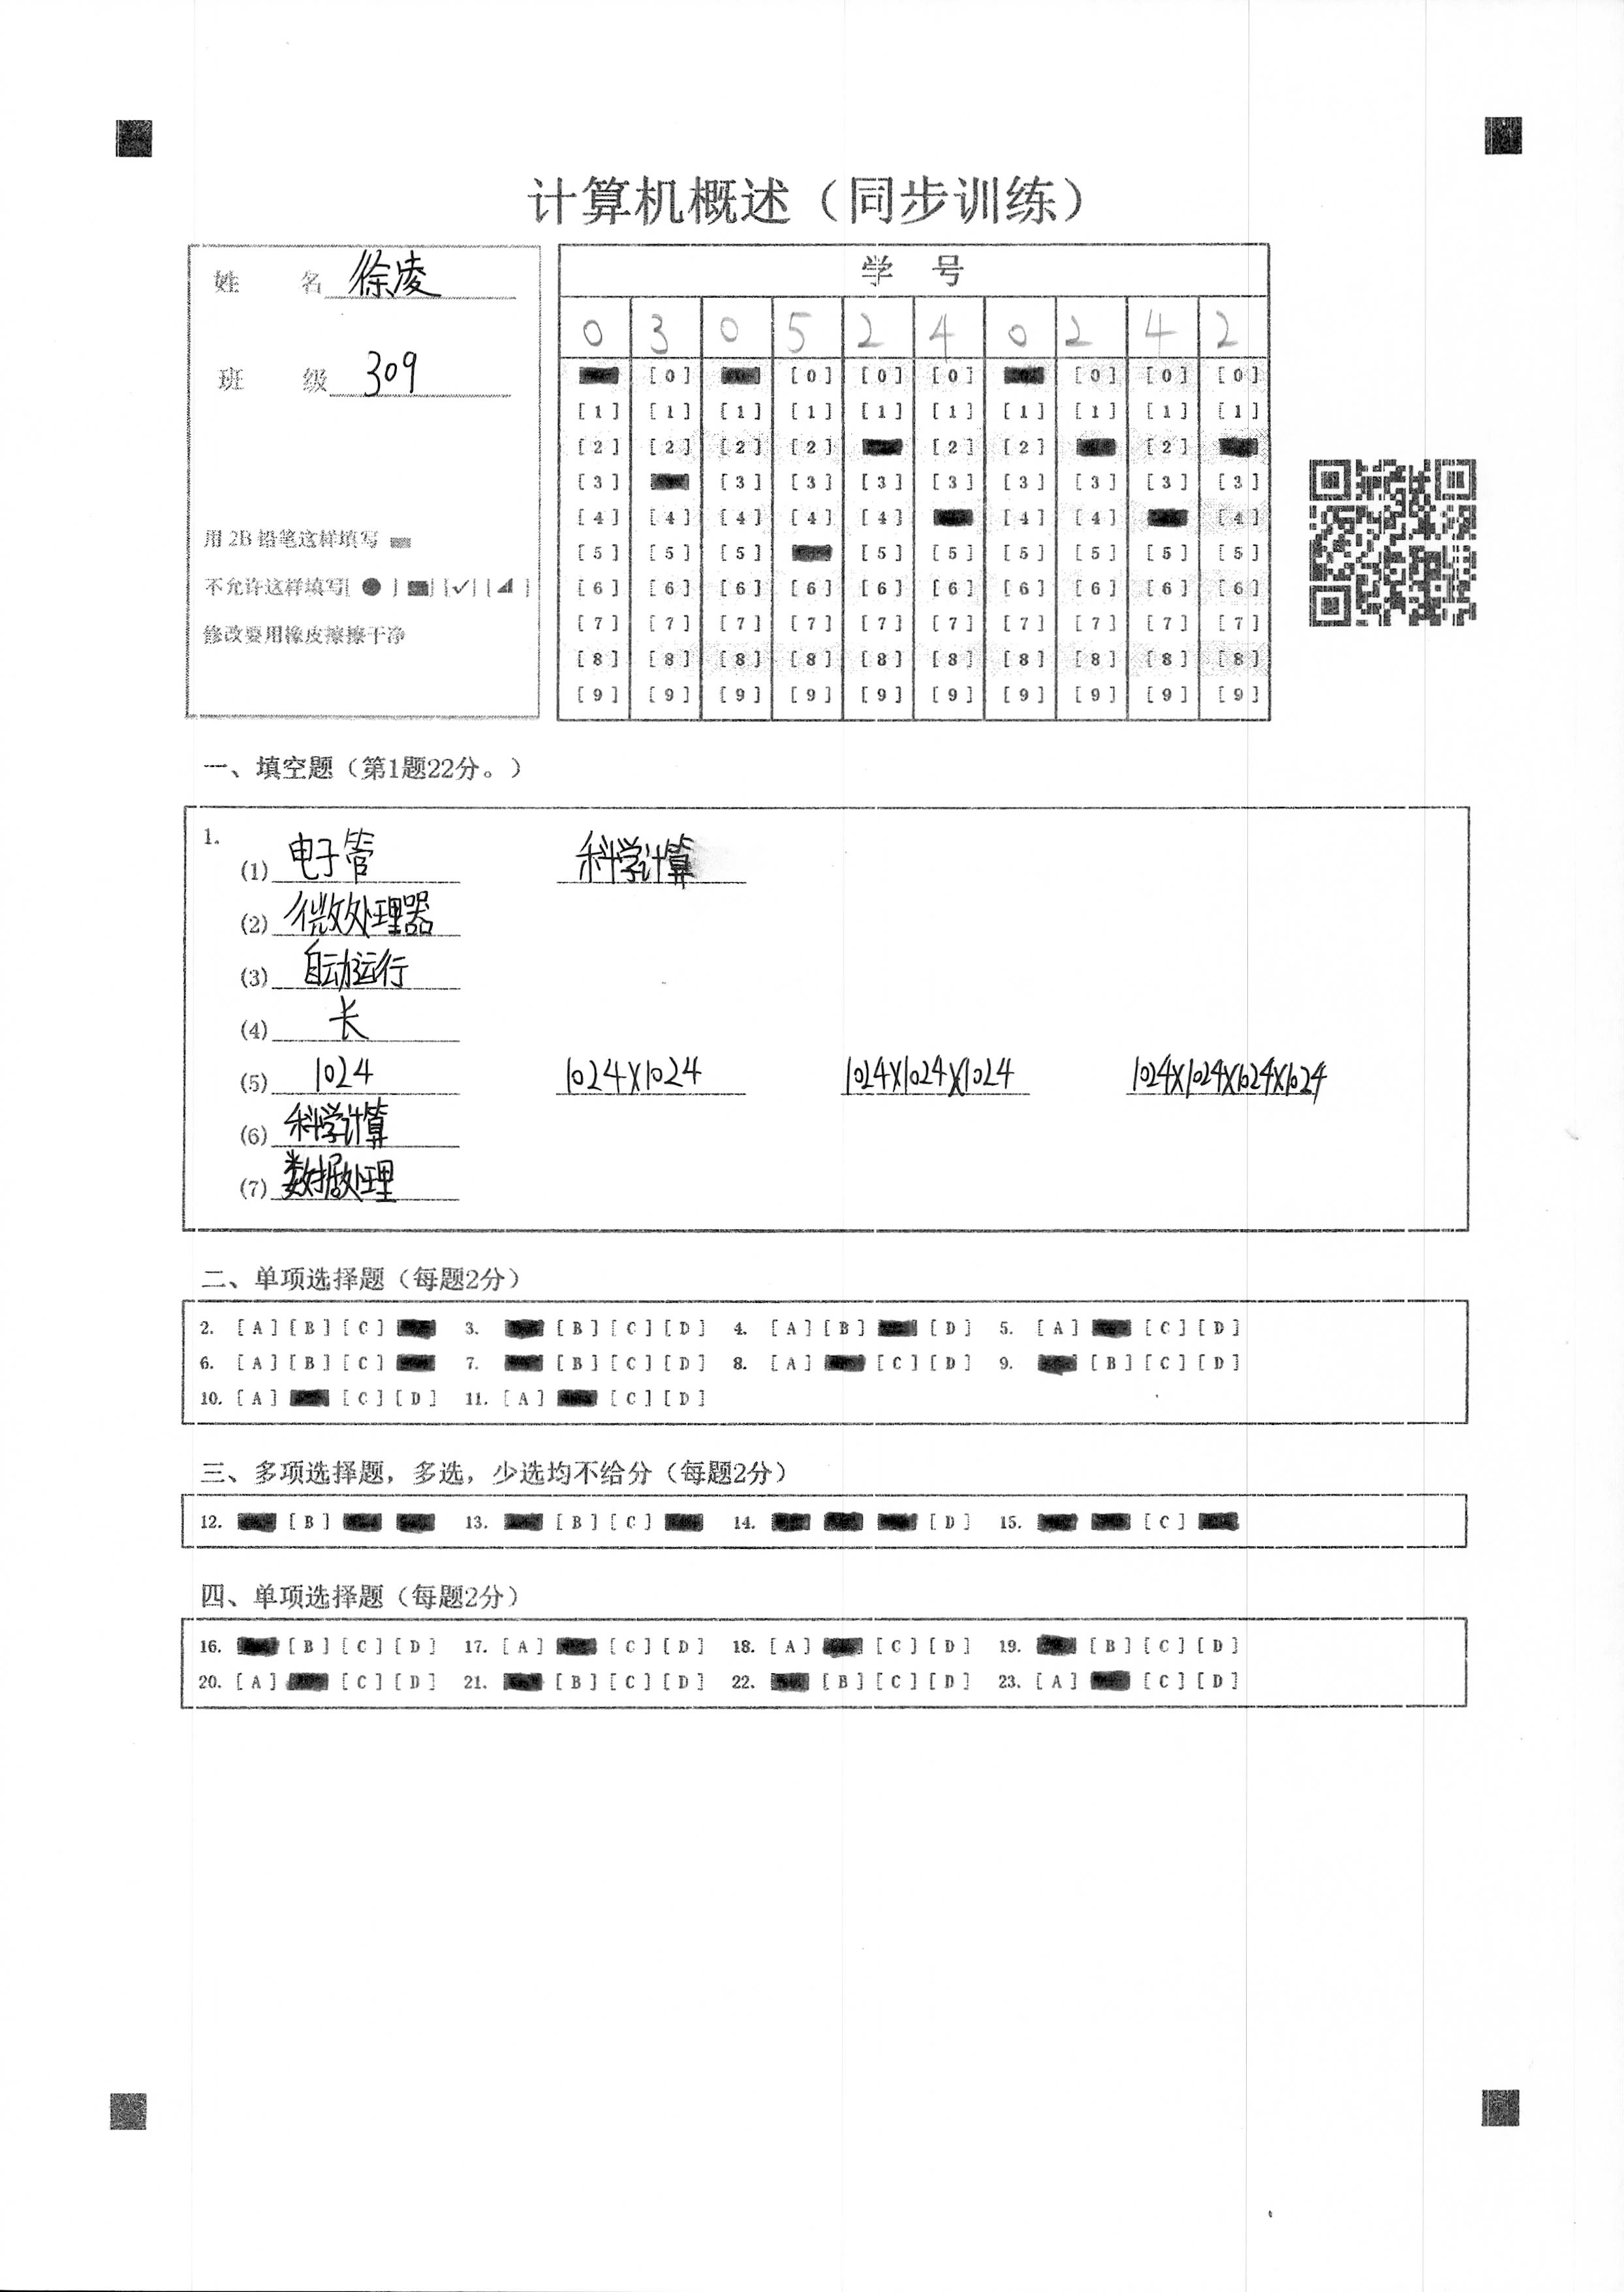 计算机概述（同步训练）
姓 名 徐凌
班 级 309
用 2B 铅笔这样填写
不允许这样填写[ ● ] [■] [✓] [◢]
修改要用橡皮擦擦干净
学 号
0 3 0 5 2 4 0 2 4 2
[0] [0] [0] [0] [0] [0] [0]
[1] [1] [1] [1] [1] [1] [1] [1] [1] [1]
[2] [2] [2] [2] [2] [2] [2]
[3] [3] [3] [3] [3] [3] [3] [3] [3]
[4] [4] [4] [4] [4] [4] [4] [4]
[5] [5] [5] [5] [5] [5] [5] [5] [5]
[6] [6] [6] [6] [6] [6] [6] [6] [6] [6]
[7] [7] [7] [7] [7] [7] [7] [7] [7] [7]
[8] [8] [8] [8] [8] [8] [8] [8] [8] [8]
[9] [9] [9] [9] [9] [9] [9] [9] [9] [9]
一、填空题（第1题22分。）
1.
(1) 电子管 科学计算
(2) 微处理器
(3) 自动运行
(4) 长
(5) 1024 1024×1024 1024×1024×1024 1024×1024×1024×1024
(6) 科学计算
(7) 数据处理
二、单项选择题（每题2分）
2. [A] [B] [C] 3. [B] [C] [D] 4. [A] [B] [D] 5. [A] [C] [D]
6. [A] [B] [C] 7. [B] [C] [D] 8. [A] [C] [D] 9. [B] [C] [D]
10. [A] [C] [D] 11. [A] [C] [D]
三、多项选择题，多选，少选均不给分（每题2分）
12. [B] 13. [B] [C] 14. [D] 15. [C]
四、单项选择题（每题2分）
16. [B] [C] [D] 17. [A] [C] [D] 18. [A] [C] [D] 19. [B] [C] [D]
20. [A] [C] [D] 21. [B] [C] [D] 22. [B] [C] [D] 23. [A] [C] [D]